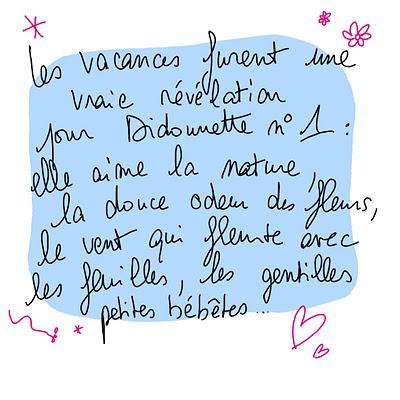 les vacances furent une
vraie révélation
pour Didounette n° 1 :
elle aime la nature,
la douce odeur des fleurs,
le vent qui fleurte avec
les feuilles, les gentilles
petites bébêtes...